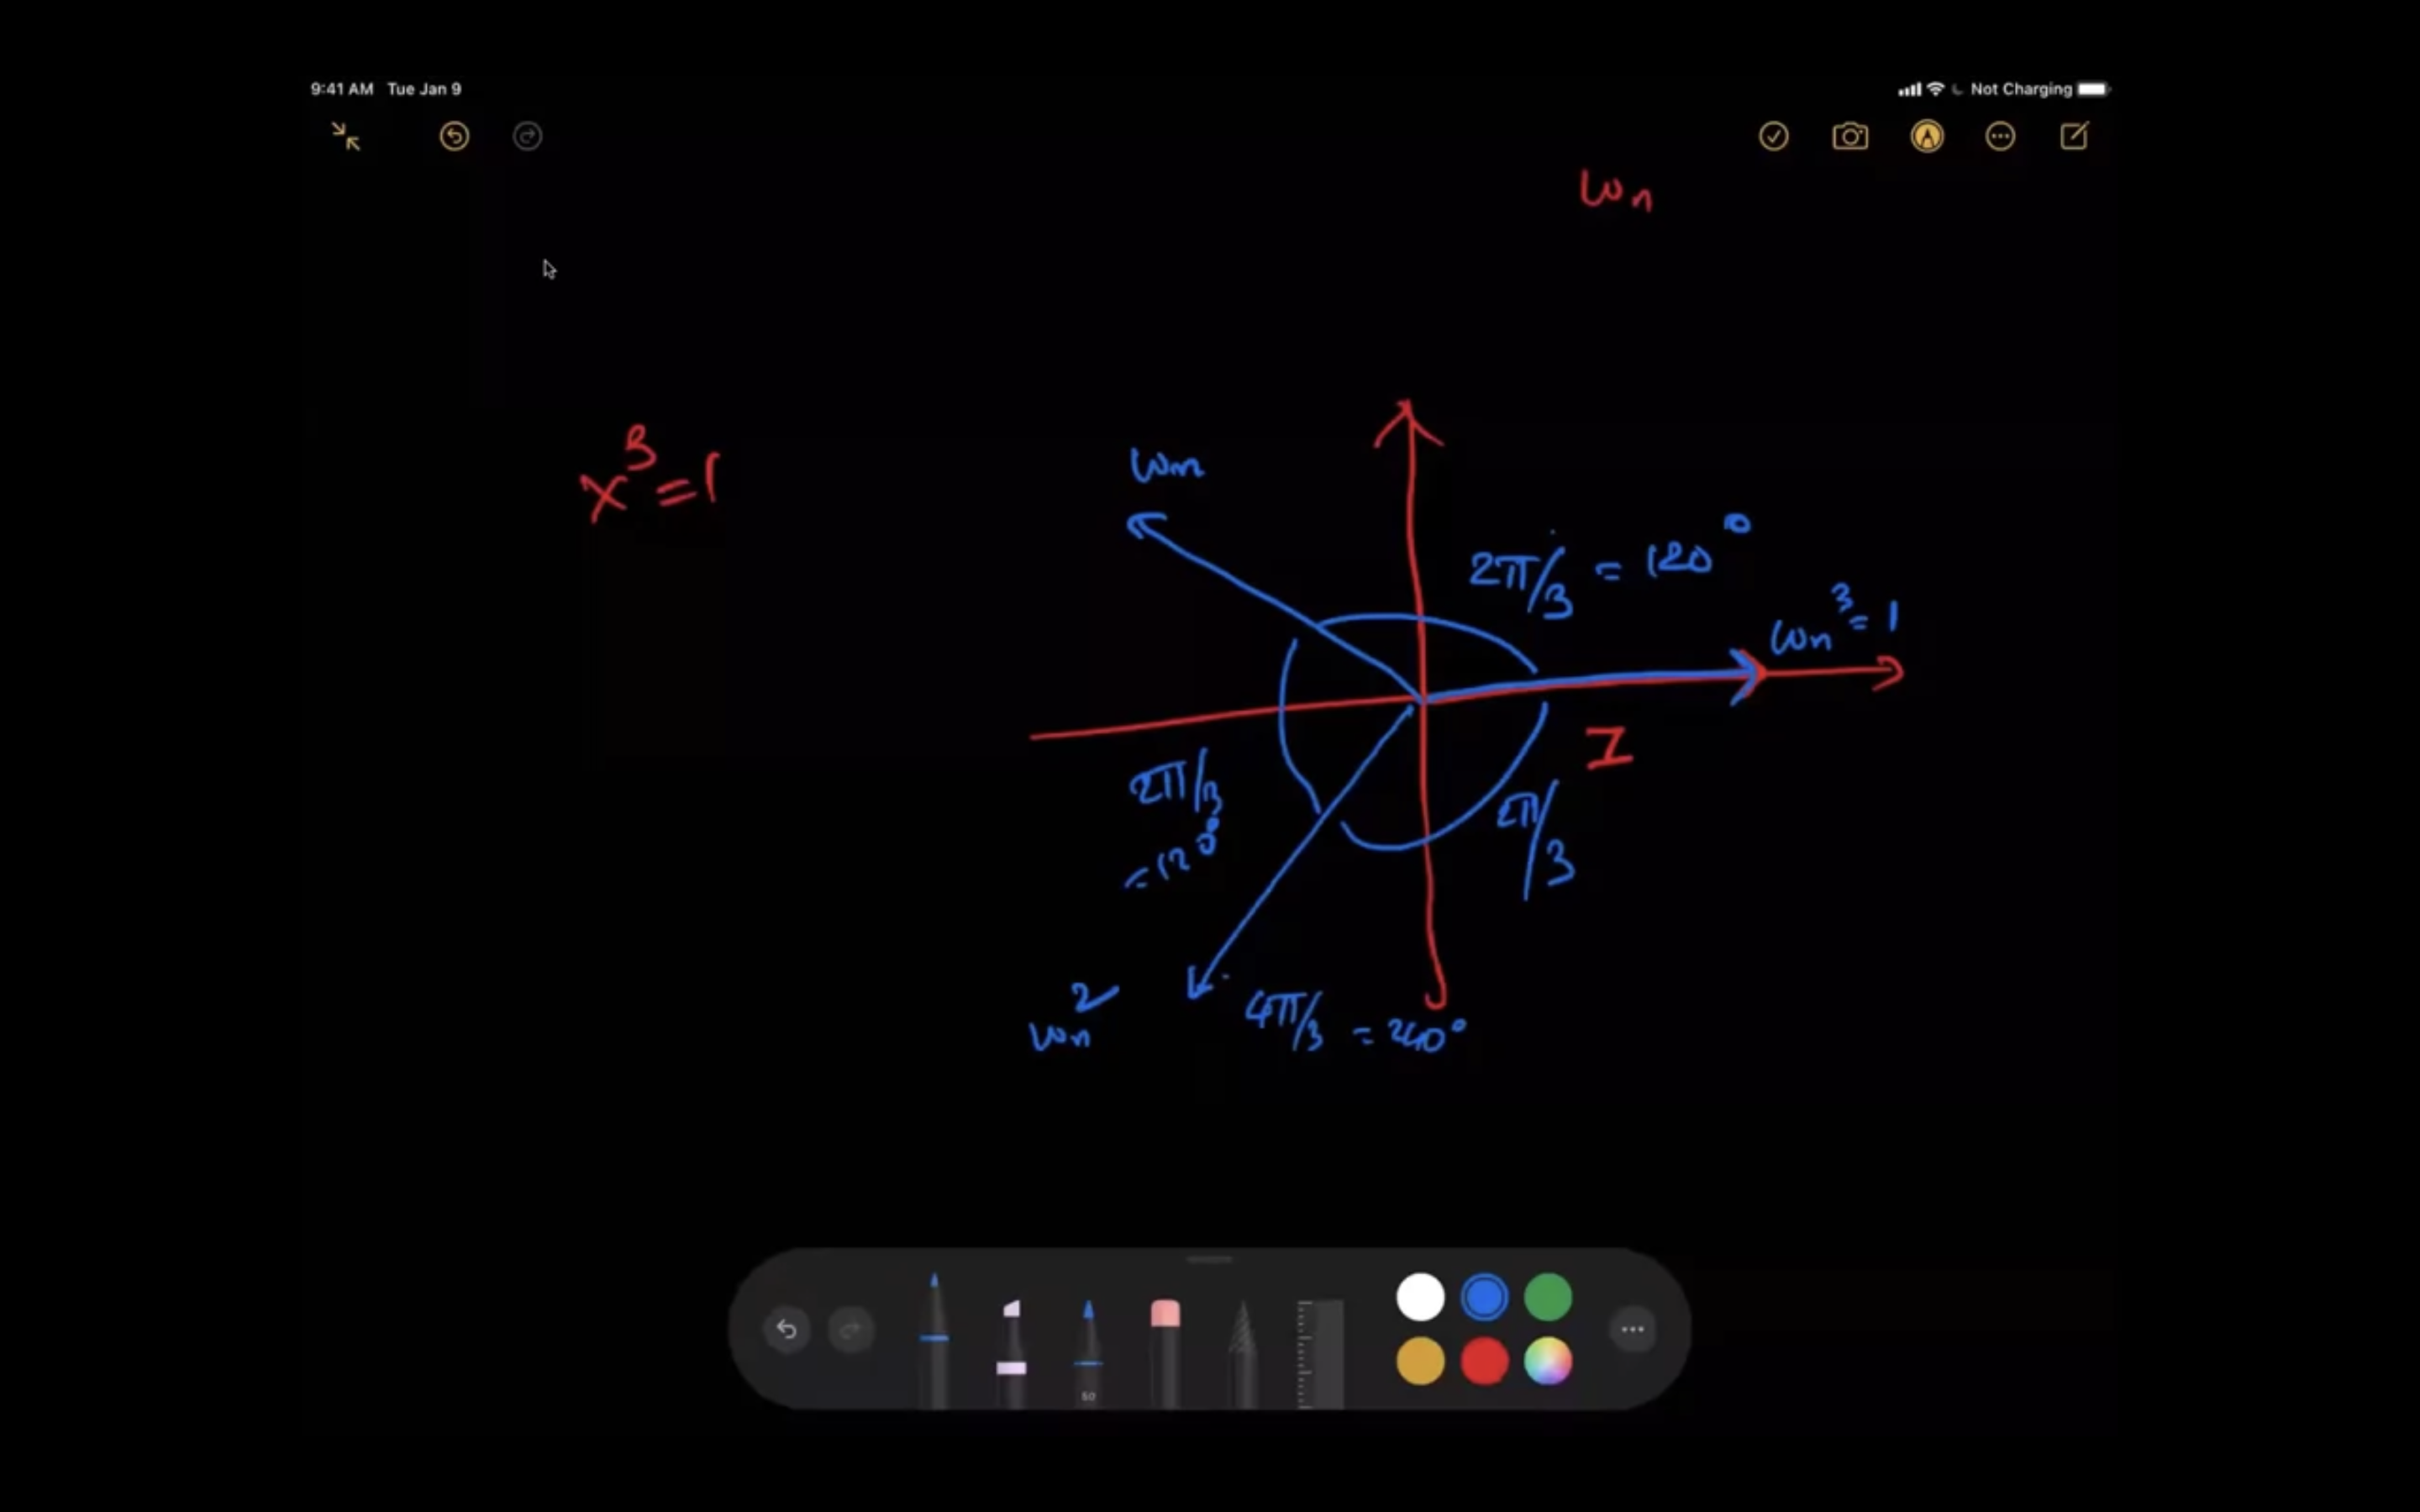 9:41 AM Tue Jan 9
Not Charging
ωn
x³=1
ωn
2π/3 = 120°
ωn³=1
I
2π/3
=120°
2π/3
ωn²
4π/3 = 240°
50